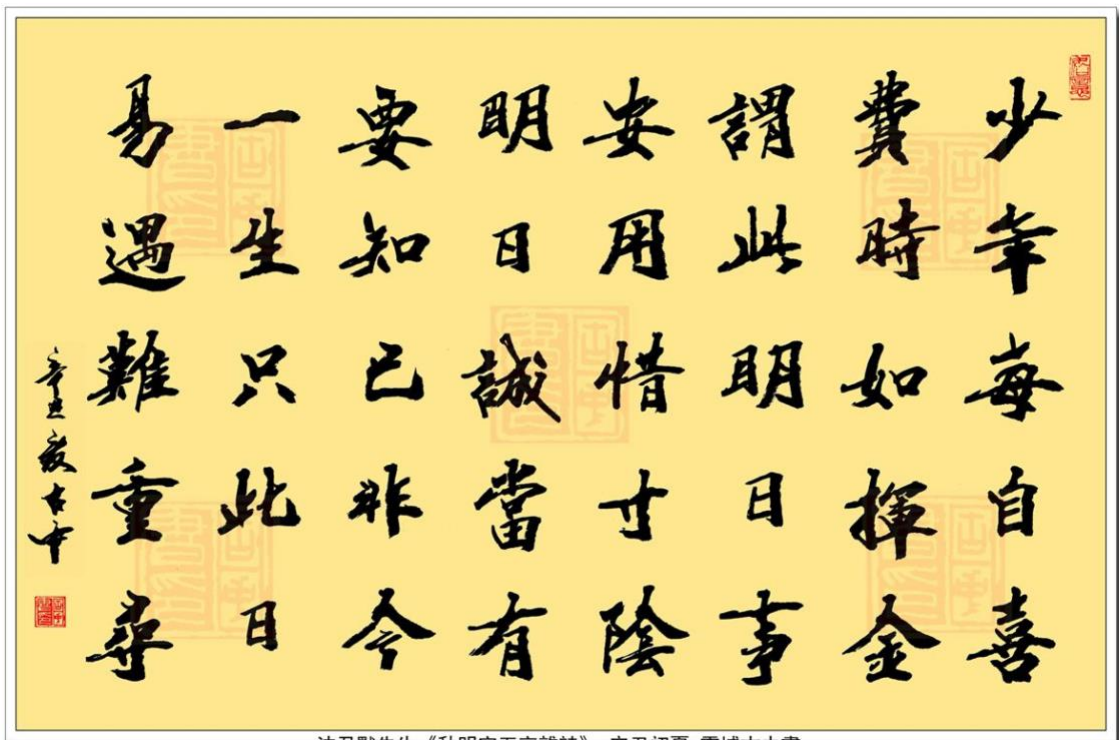 少年每自喜
費時如揮金
謂此明日事
安用惜寸陰
明日誠當有
要知已非今
一生只此日
易遇難重尋